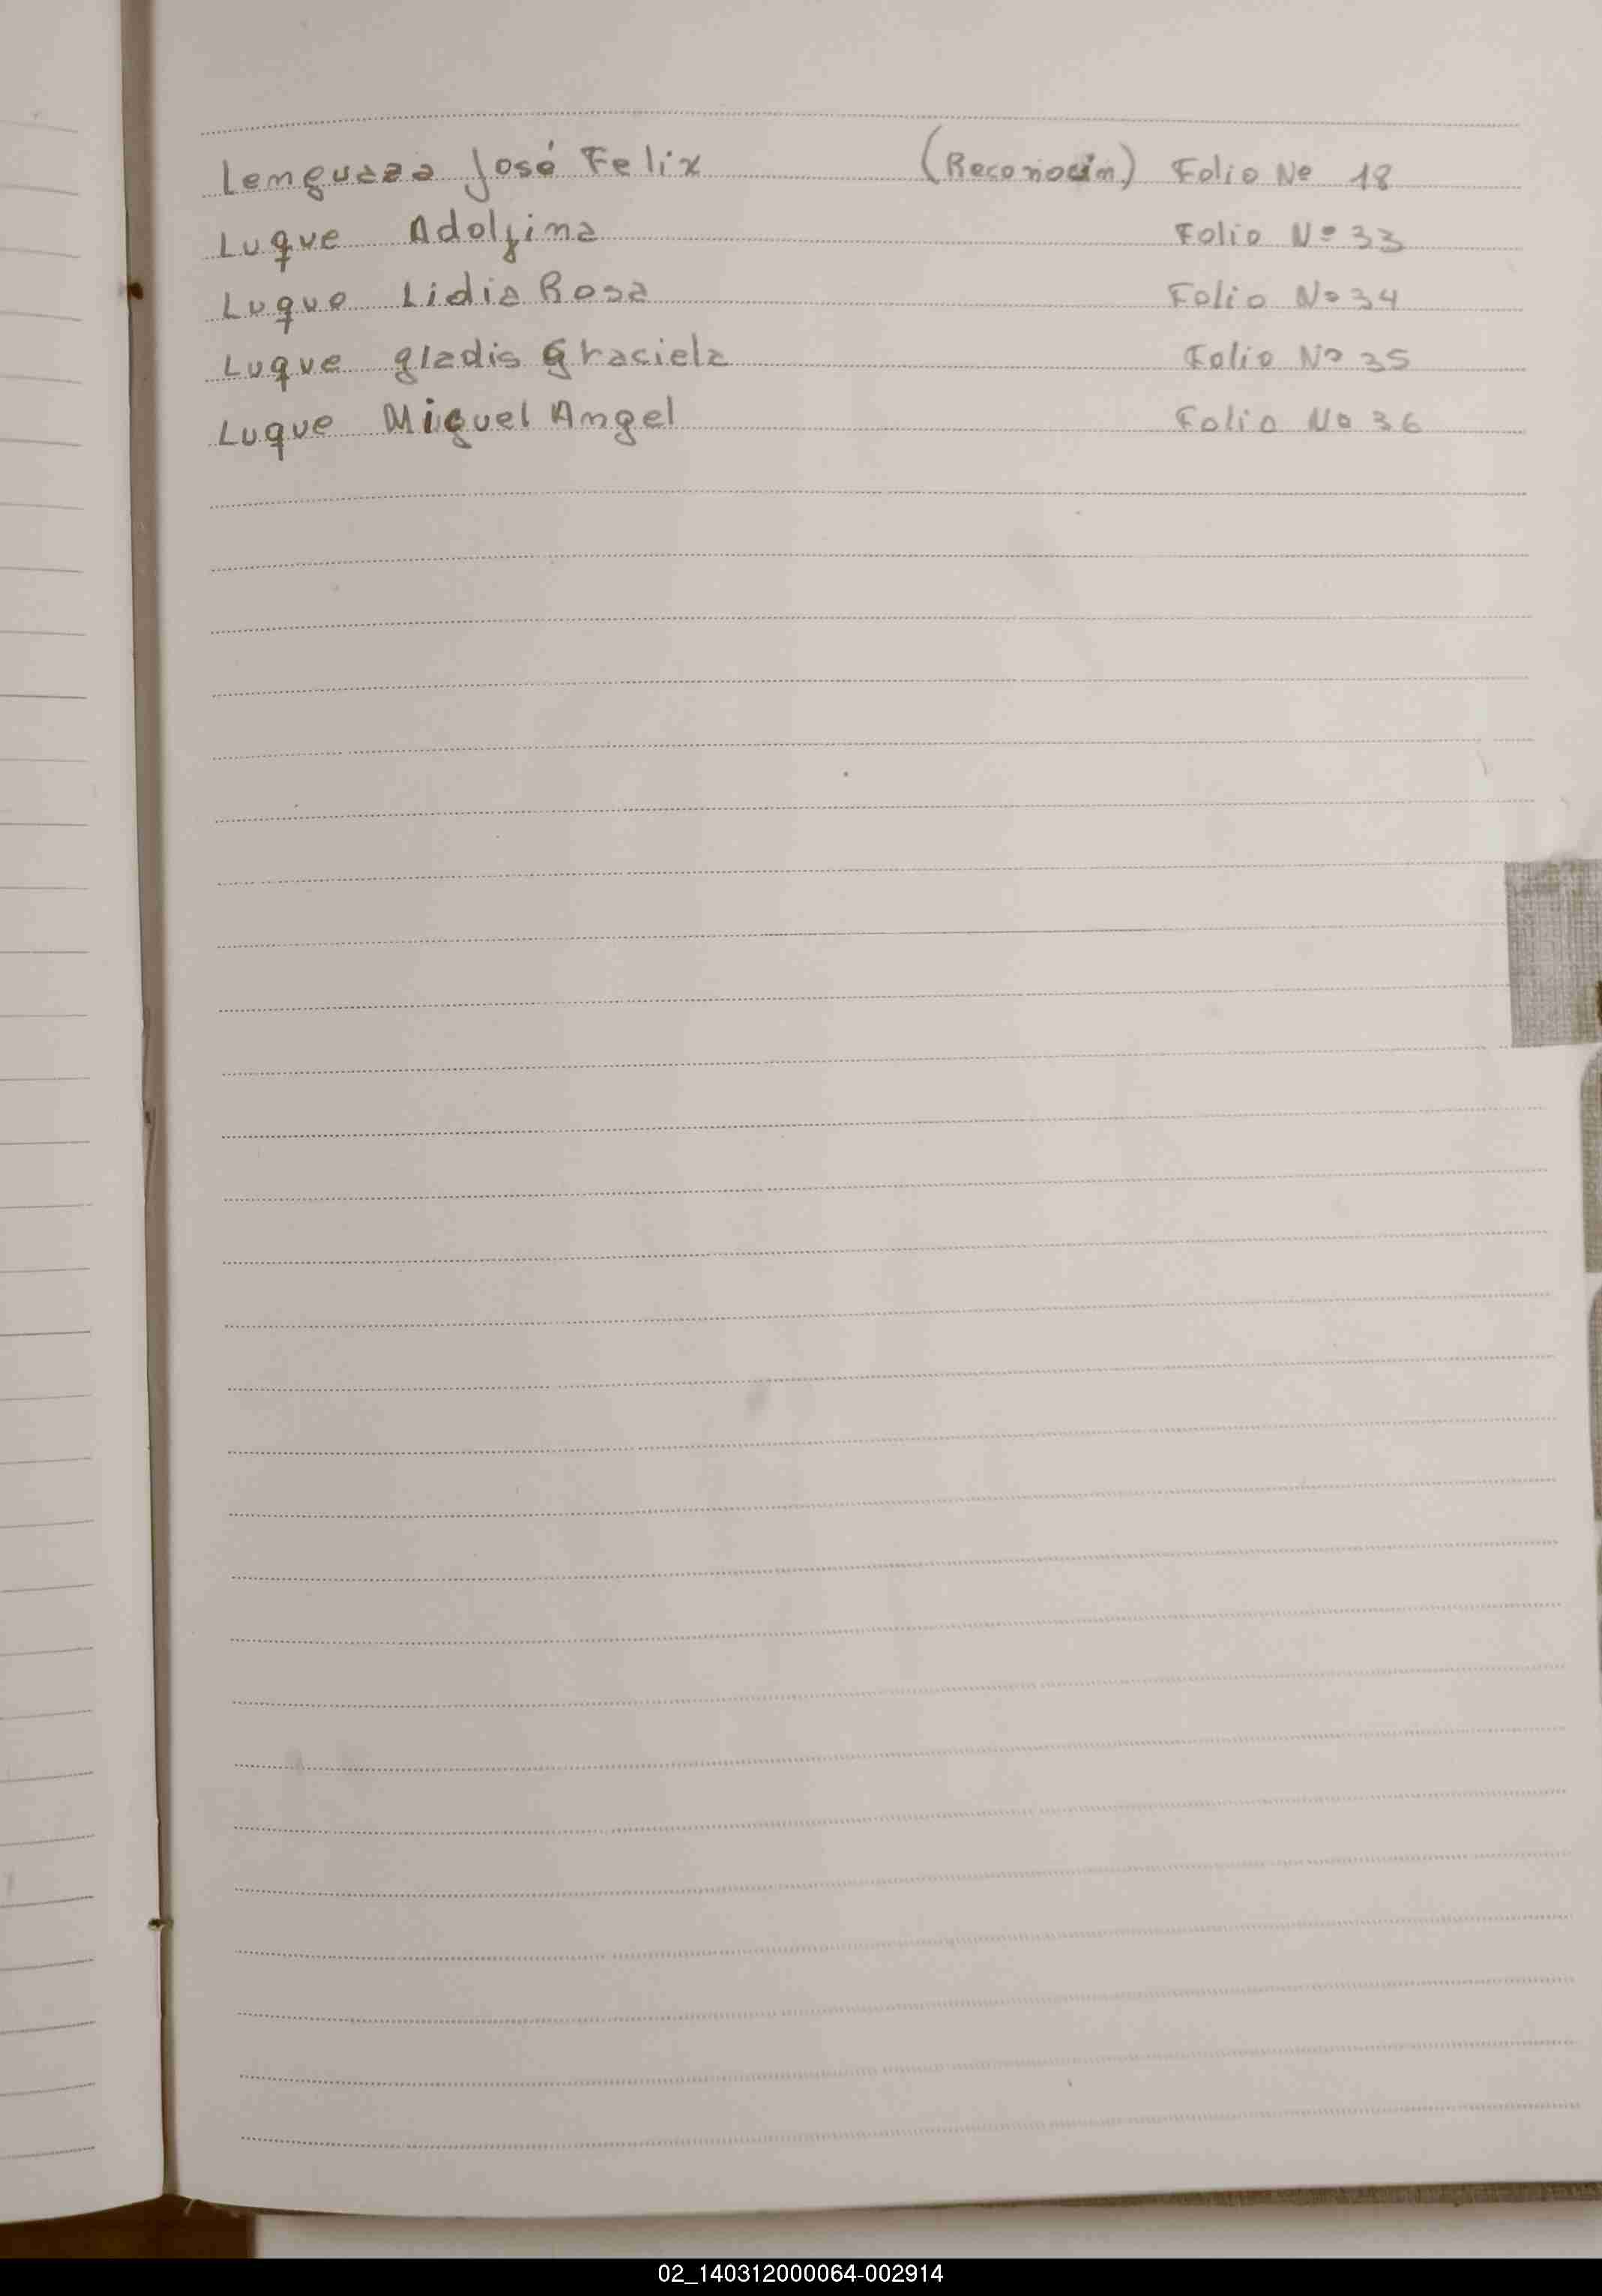 Lenguaza José Felix (Reconocim) Folio Nº 18
Luque Adolfina Folio Nº 33
Luque Lidia Rosa Folio Nº 34
Luque gladis Graciela Folio Nº 35
Luque Miguel Angel Folio Nº 36
02_140312000064-002914